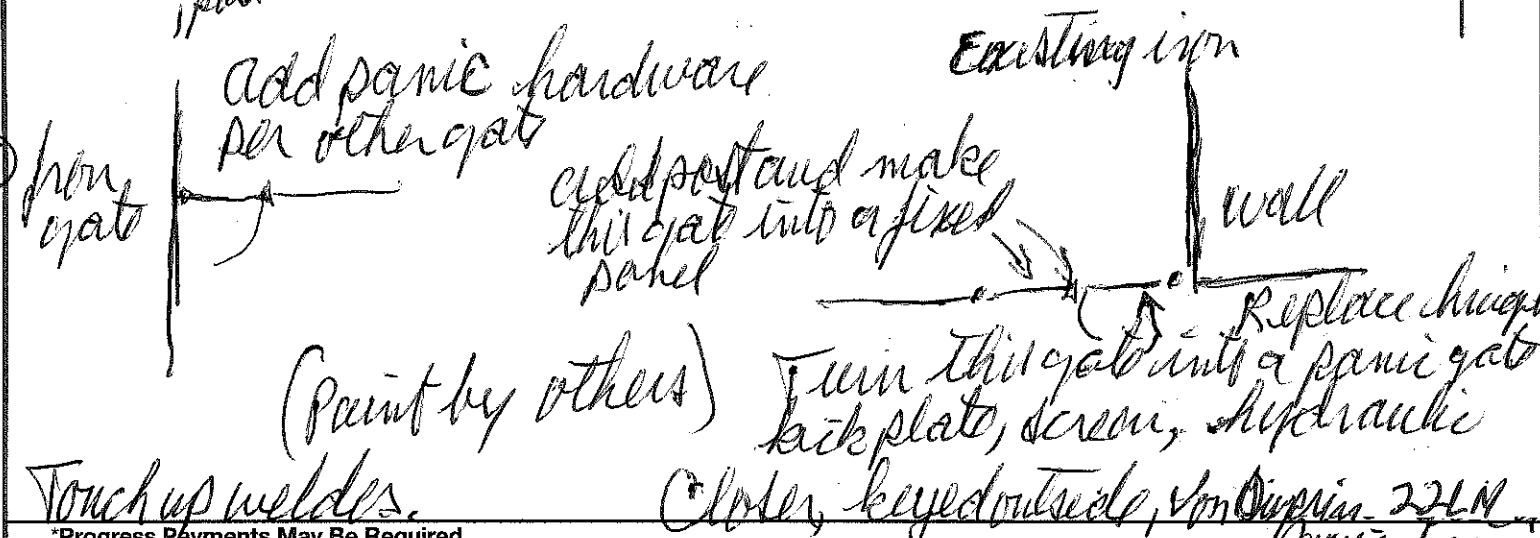 add panic hardware
per other gate
Iron
gate
Existing iron
add post and make
this gate into a fixed
panel
wall
Replace hinge
(Paint by others)
Turn this gate into a panic gate
kick plate, screen, hydraulic
Touch up weldes.
Closer, keyed outside, Von Duprin 22LN
*Progress Payments May Be Required